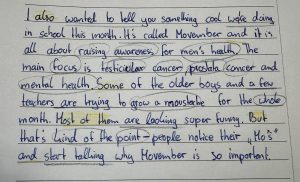 I also wanted to tell you something cool we're doing
in school this month. It's called Movember and it is
all about raising awareness for men's health. The
main focus is testicular cancer, prostata cancer and
mental health. Some of the older boys and a few
teachers are trying to grow a moustache for the whole
month. Most of them are looking super funny. But
that's kind of the point - people notice their „Mo's"
and start talking why Movember is so important.